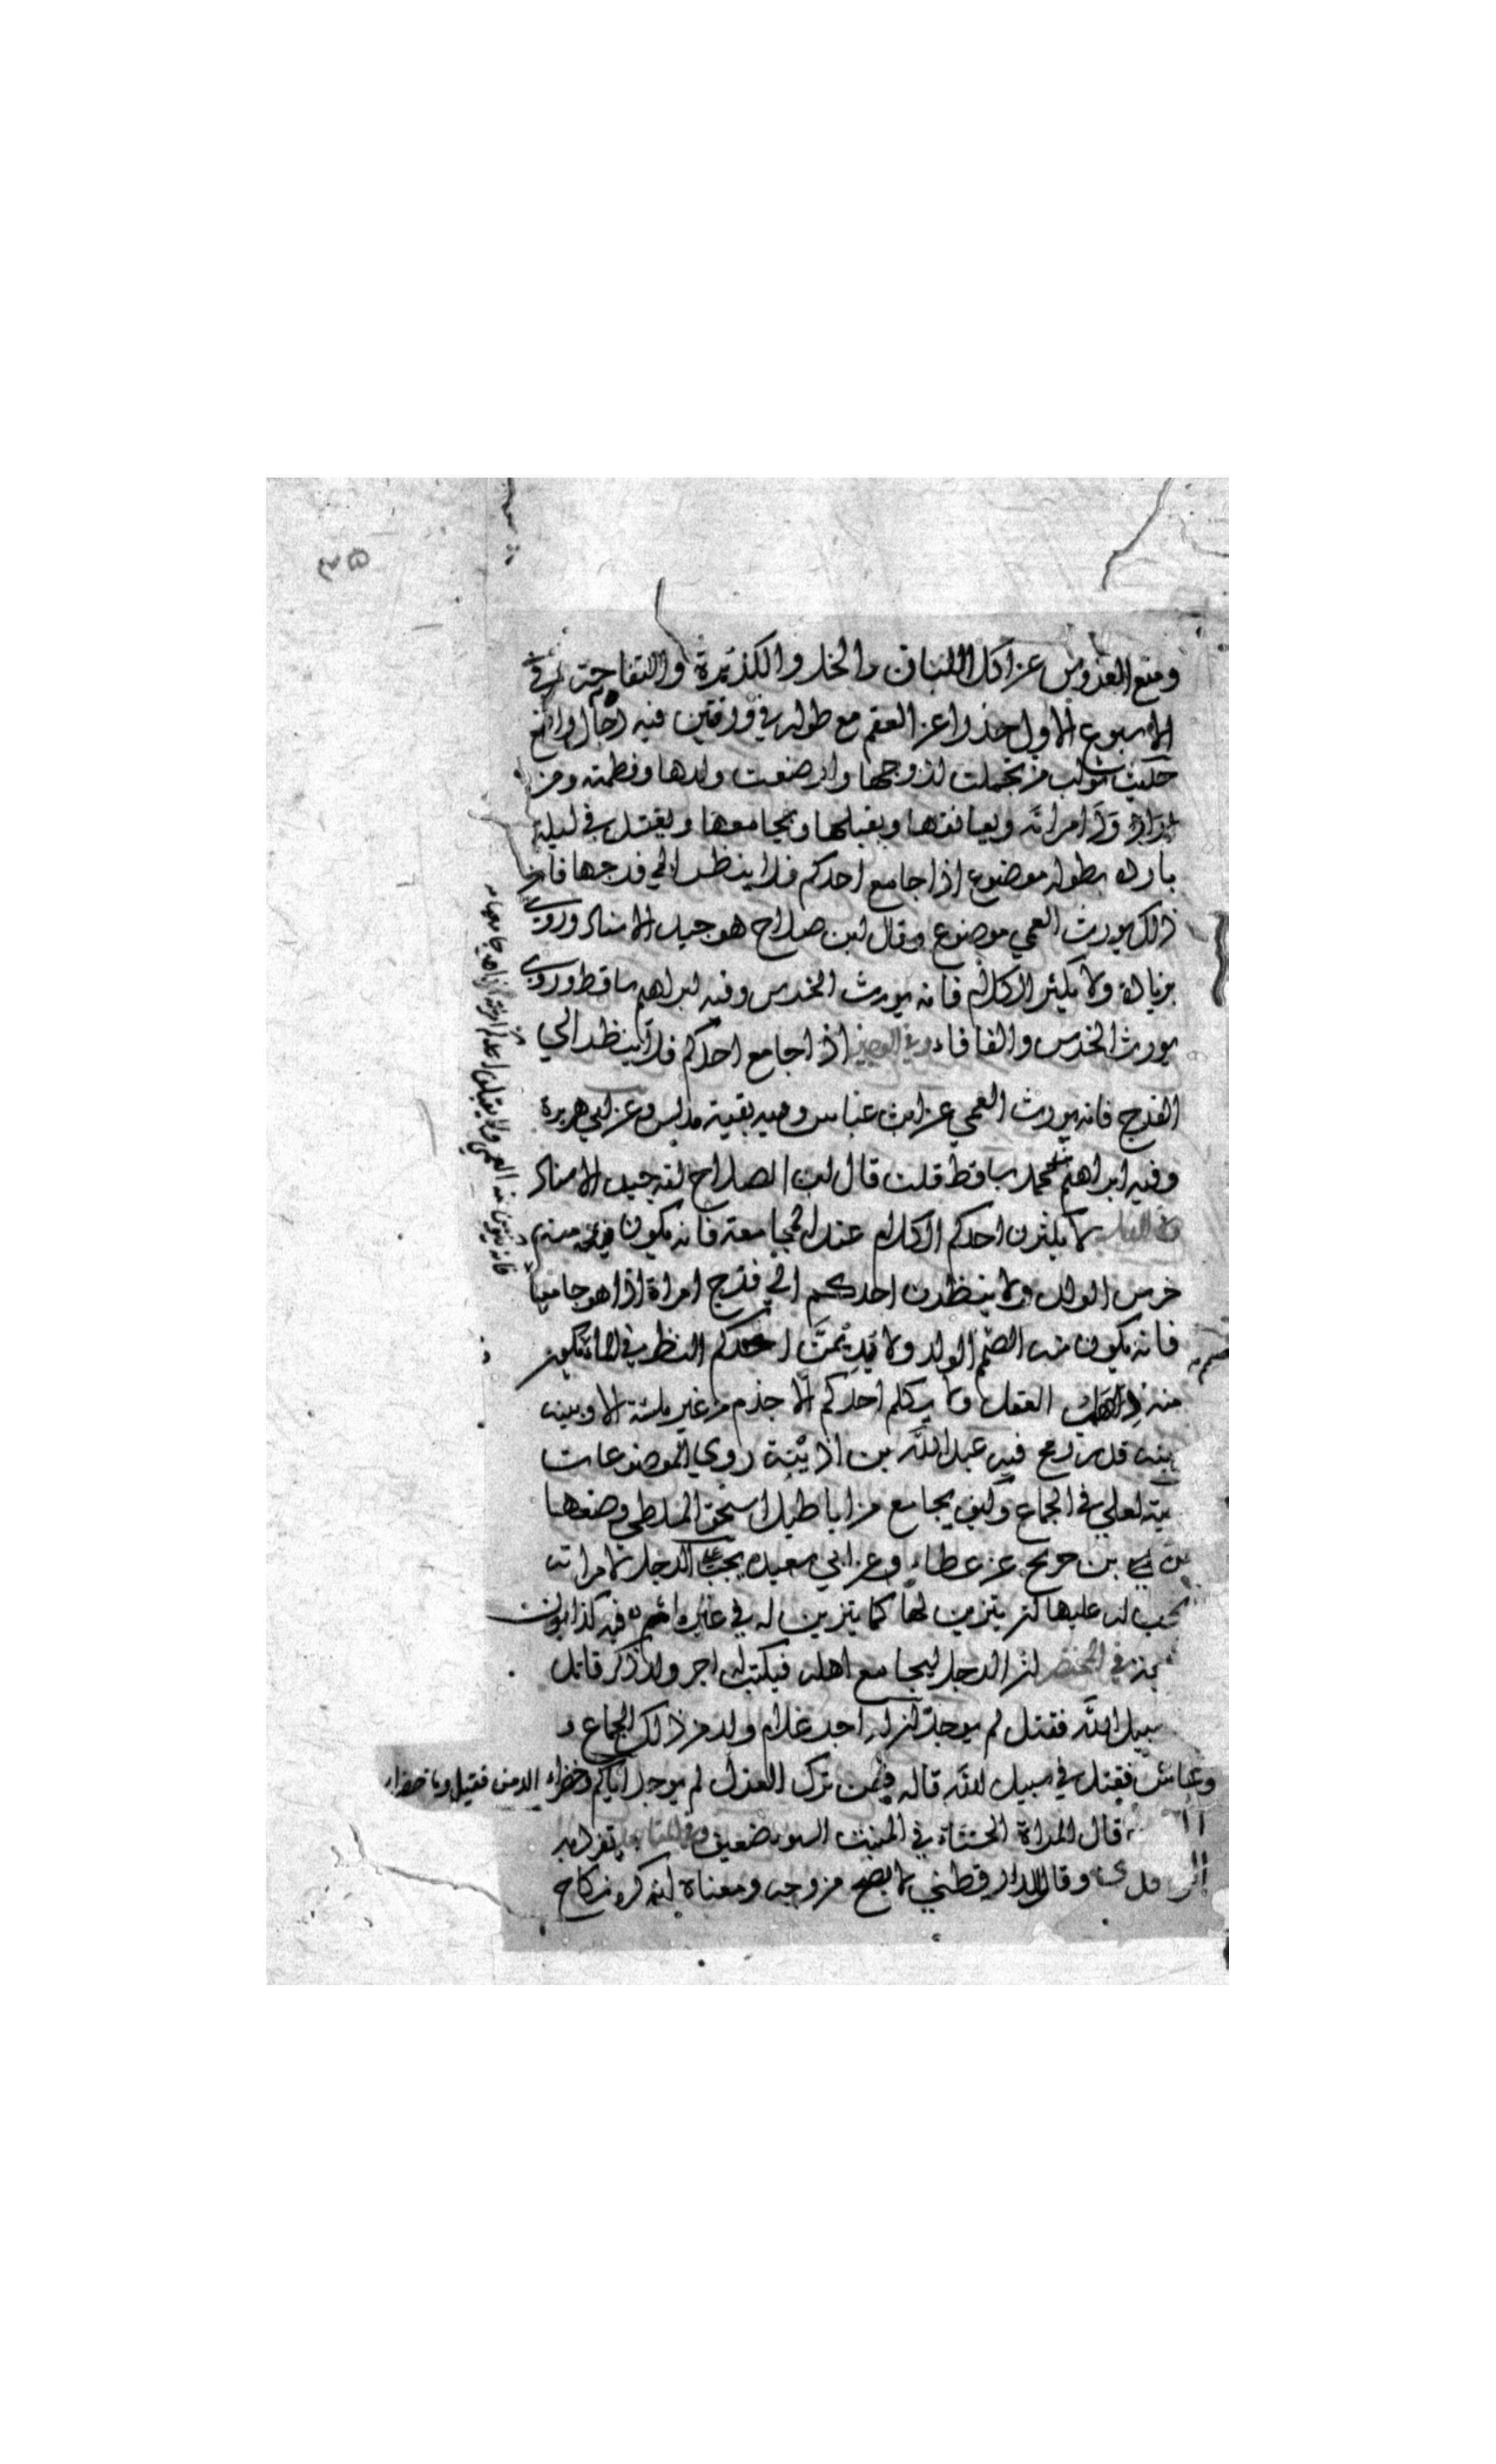 ومنع العروس عن اكل اللبان والخل والكزبرة والتفاحة في
الاسبوع الاول حذرا عن العقم مع طوله في ورقتين فيه
حديث ثواب من تجملت لزوجها وارضعت ولدها وفطمته ومن
امراته ويعانقها ويقبلها ويجامعها ويغتسل في ليلة
باردة بطوله موضوع اذا جامع احدكم فلا ينظر الي فرجها فان
ذلك يورث العمي موضوع وقال ابن صلاح هو جيد الاسناد وروي
بزيادة ولا يكثر الكلام فانه يورث الخرس وفيه ابراهيم ساقط وروي
يورث الخرس والفافاء وفي الوجيز اذا جامع احدكم فلا ينظر الي
الفرج فانه يورث العمي عن ابن عباس وفيه بقية مدلس وعن ابي هريرة
وفيه ابراهيم بن محمد ساقط قلت قال ابن الصلاح انه جيد الاسناد
لا يكثرن احدكم الكلام عند المجامعة فانه يكون منه
خرس الولد ولا ينظرن احدكم الي فرج امراة اذا هو جامعها
فانه يكون منه الصمم الولد ولا يديمن احدكم النظر في الماء فيكون
منه ذهاب العقل ولا يكلم احدكم الاجذم من غير ملسة الا وبينه
بينه قدر رمح فيه عبد الله بن اذينة روي الموضوعات
لعلي في الجماع وكيف يجامع من اباطيل اسحق الملطي وضعها
بن جريج عن عطاء وعن ابي سعيد يجب علي الرجل لامراته
يجب له عليها ان يتزين لها كما يتزين له في غير اثم فيه كذابون
في المختصر ان الرجل ليجامع اهله فيكتب له اجر ولد ذكر قاتل
سبيل الله فقتل لم يوجد ان له اجر غلام ولد من ذلك الجماع
وعاش فقتل في سبيل الله قاله فيمن ترك العزل لم يوجد اياكم وخضراء الدمن فقيل وما خضراء
قال المراة الحسناء في المنبت السوء ضعيف تفرد به
وقال الدار قطني لا يصح من وجه ومعناه انه كره نكاح